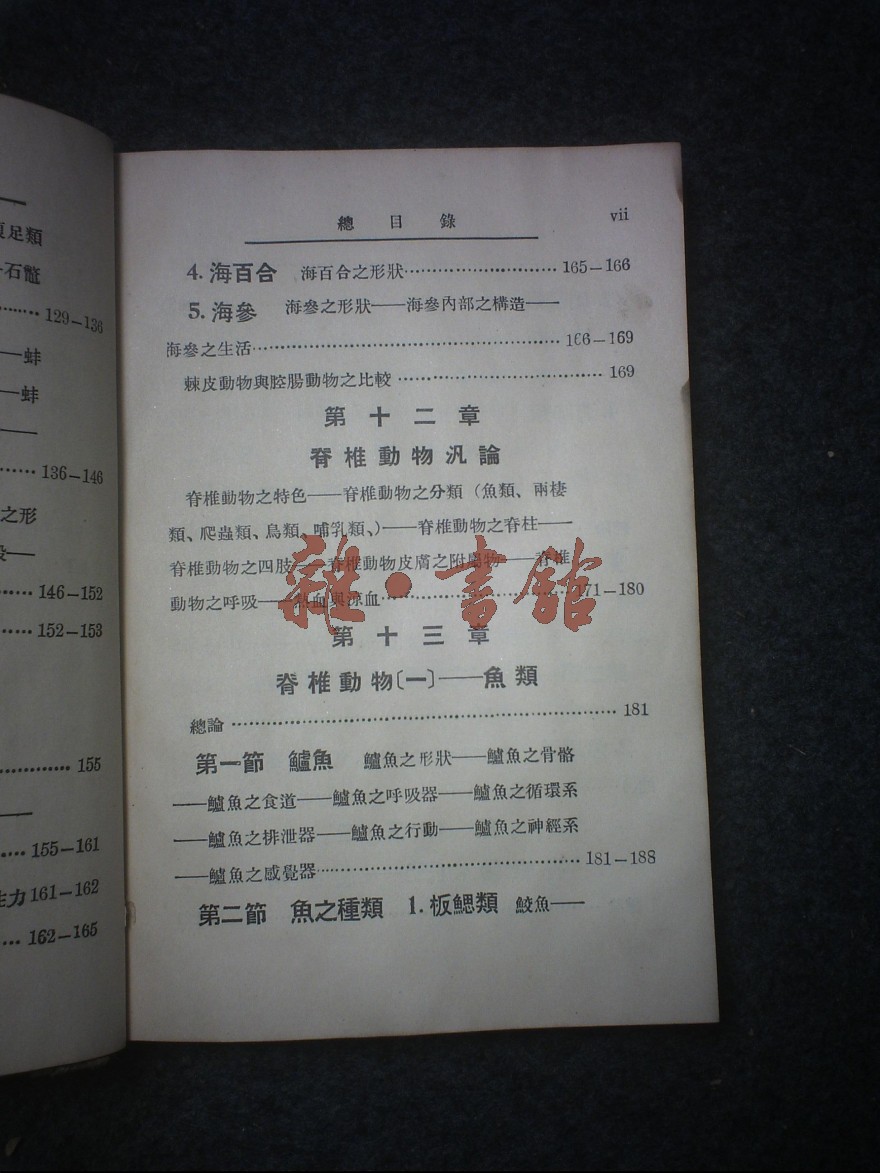 足類
石鼈
129-136
——蚌
——蚌
——
136-146
之形
——
146-152
152-153
155
——
155-161
力 161-162
162-165
總目錄 vii
4. 海百合 海百合之形狀 165-166
5. 海參 海參之形狀——海參內部之構造——
海參之生活 166-169
棘皮動物與腔腸動物之比較 169
第十二章
脊椎動物汎論
脊椎動物之特色——脊椎動物之分類（魚類、兩棲
類、爬蟲類、鳥類、哺乳類、）——脊椎動物之脊柱——
脊椎動物之四肢——脊椎動物皮膚之附屬物——脊椎
動物之呼吸——熱血與涼血 171-180
雜·書館
第十三章
脊椎動物〔一〕——魚類
總論 181
第一節 鱸魚 鱸魚之形狀——鱸魚之骨骼
——鱸魚之食道——鱸魚之呼吸器——鱸魚之循環系
——鱸魚之排泄器——鱸魚之行動——鱸魚之神經系
——鱸魚之感覺器 181-188
第二節 魚之種類 1. 板鰓類 鮫魚——